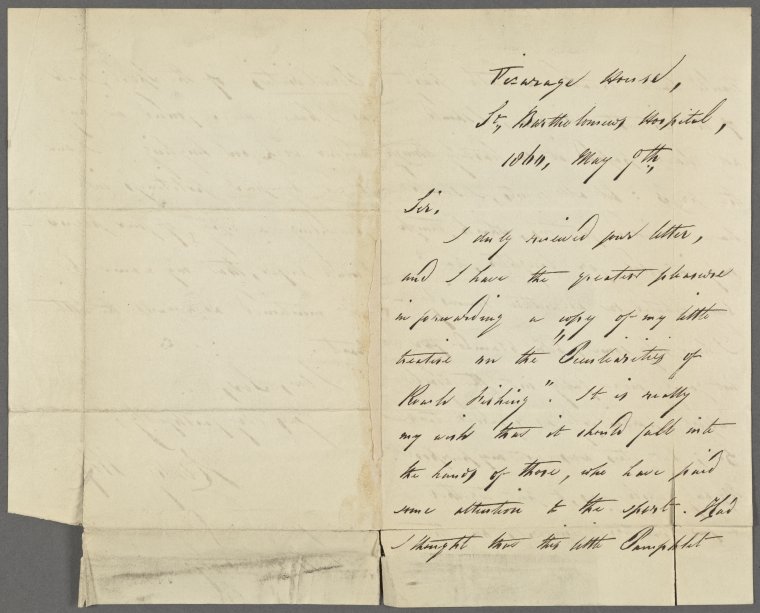 Vicarage House,
St, Bartholomews Hospital,
1864, May 9th,
Sir,
I duly recieved your letter,
and I have the greatest pleasure
in forwarding a copy of my little
treatise on the "Peculiarities of
Roach Fishing". It is really
my wish that it should fall into
the hands of those, who have paid
some attention to the sport. Had
I thought that this little Pamphlet